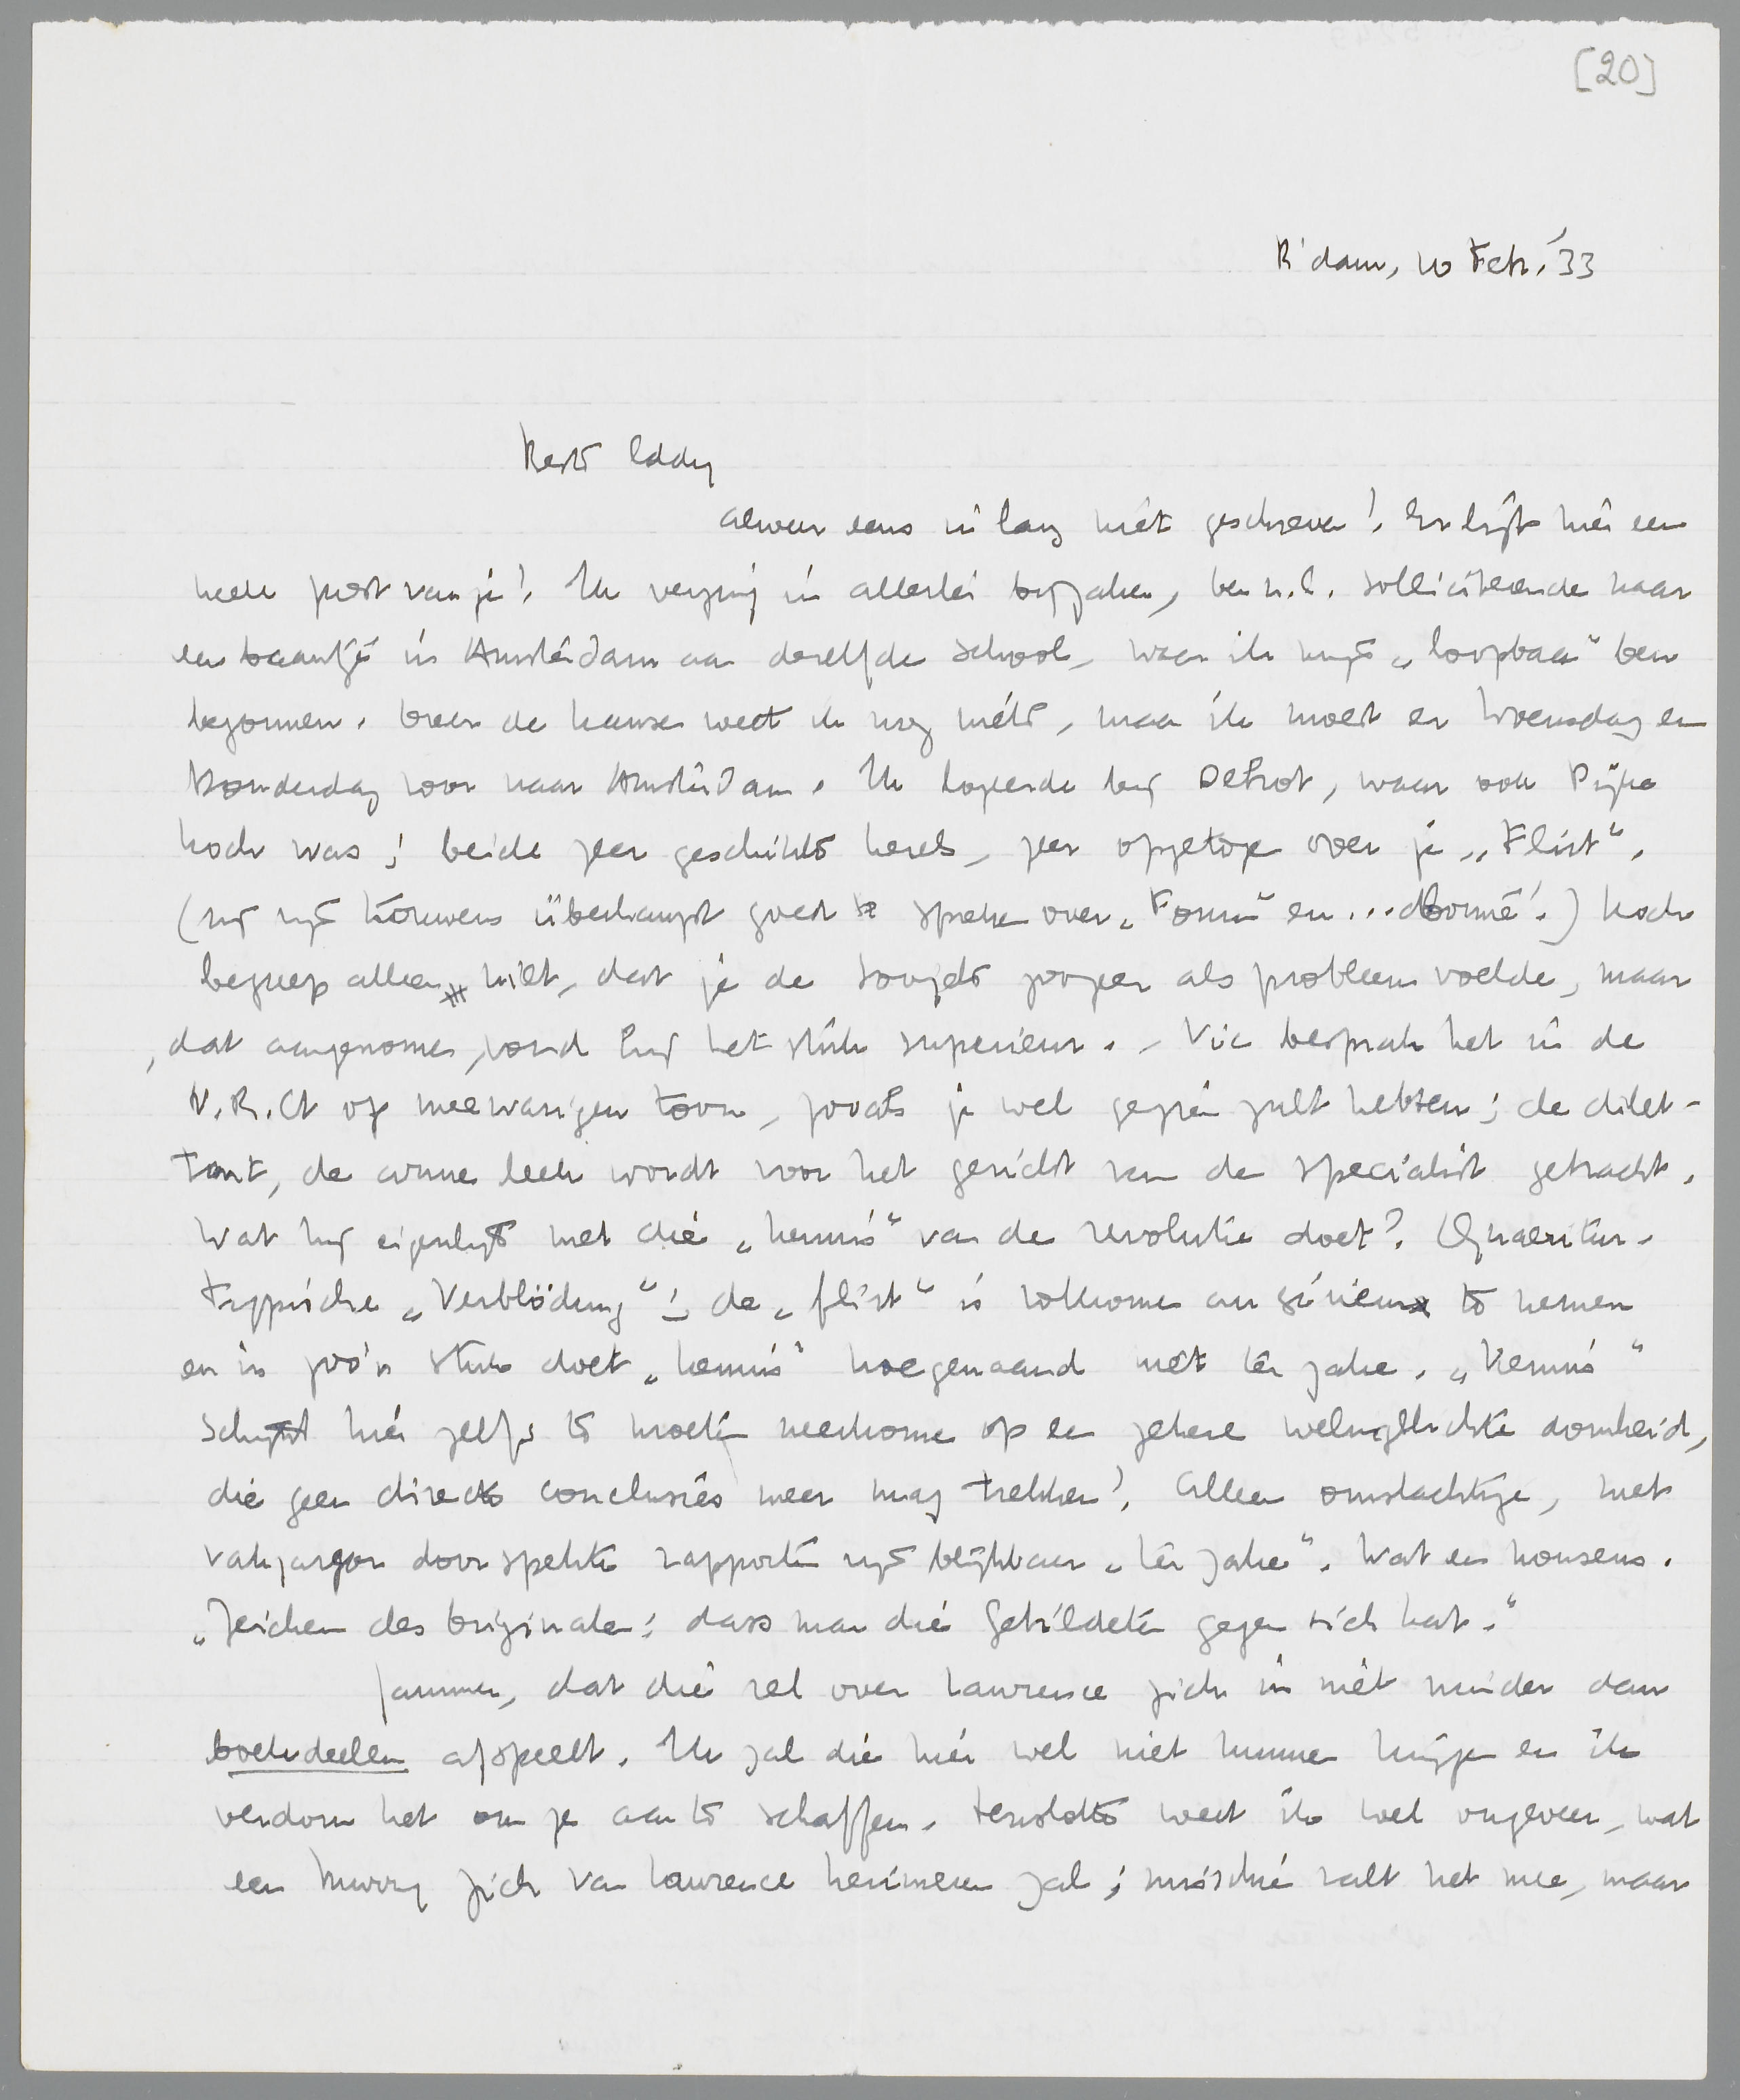 [20]
R'dam, 10 Febr. '33
Beste Eddy
alweer eens in lang niet geschreven! Er ligt hier een
heele post van je! Ik verging in allerlei bijzaken, ben n.l. solliciteerende naar
een baantje in Amsterdam aan dezelfde school, waar ik mijn „loopbaan" ben
begonnen. Over de kansen weet ik nog niets, maar ik moest er Woensdag en
Donderdag voor naar Amsterdam. Ik logeerde bij DeProt, waar ook Pijke
Koch was; beide zeer geschikte kerels, zeer opgetogen over je „Flirt".
(zij zijn trouwens überhaupt goed te spreken over „Forum" en... dBormé!) Koch
begreep alleen niet, dat je de Sovjets zoozeer als probleem voelde, maar
, dat aangenomen, vond hij het stuk superieur. – Vic besprak het in de
N.R.Ct op meewarigen toon, zooals je wel gezien zult hebben; de dilet-
tant, de arme leek wordt voor het gericht van de specialist gebracht.
Wat hij eigenlijk met die „kennis" van de revolutie doet? Quaeritur.
Typische „Verblödung"!; de „flirt" is volkomen au sérieux te nemen
en in zoo'n stuk doet „kennis" hoegenaamd niet ter zake. „Kennis"
schijnt hier zelfs te moeten neerkomen op een zekere welingelichte domheid,
die geen directe conclusies meer mag trekken! Alleen omslachtige, met
vakjargon doorspekte rapporten zijn blijkbaar „ter zake". Wat een nonsens.
„Zeichen des Originalen: dass man die Gebildeten gegen sich hat."
Jammer, dat die rel over Lawrence zich in niet minder dan
boekdeelen afspeelt. Ik zal die hier wel niet kunnen krijgen en ik
verdom het om ze aan te schaffen. Tenslotte weet ik wel ongeveer, wat
een Murry zich van Lawrence herinneren zal; misschien valt het mee, maar